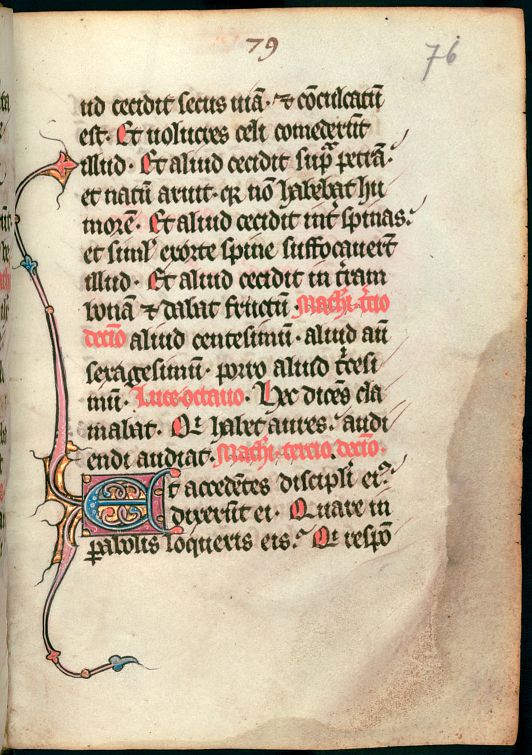 79
76
ud cecidit secus uiã· ⁊ cõculcatũ
est· Et uolucres celi comederũt
illud· Et aliud cecidit sup̃ petrã·
et natũ aruit· qꝛ nõ habebat hu
morẽ· Et aliud cecidit int̃ spinas·
et siml̾ exorte spine suffocauer̃t
illud· Et aliud cecidit in t̃ram
bonã ⁊ dabat fructũ· Mathi· t̾cio
decio aliud centesimũ· aliud aũ
sexagesimũ· porro aliud t̾cesi
mũ· Luce octauo· Hec dicẽs cla
mabat· Qi habet aures· audi
endi audiat· Mathi· tercio decio·
Et accedẽtes discipli̾ eiꝰ
dixerũt ei· Quare in
ꝑabolis loqueris eis· Qi respõ